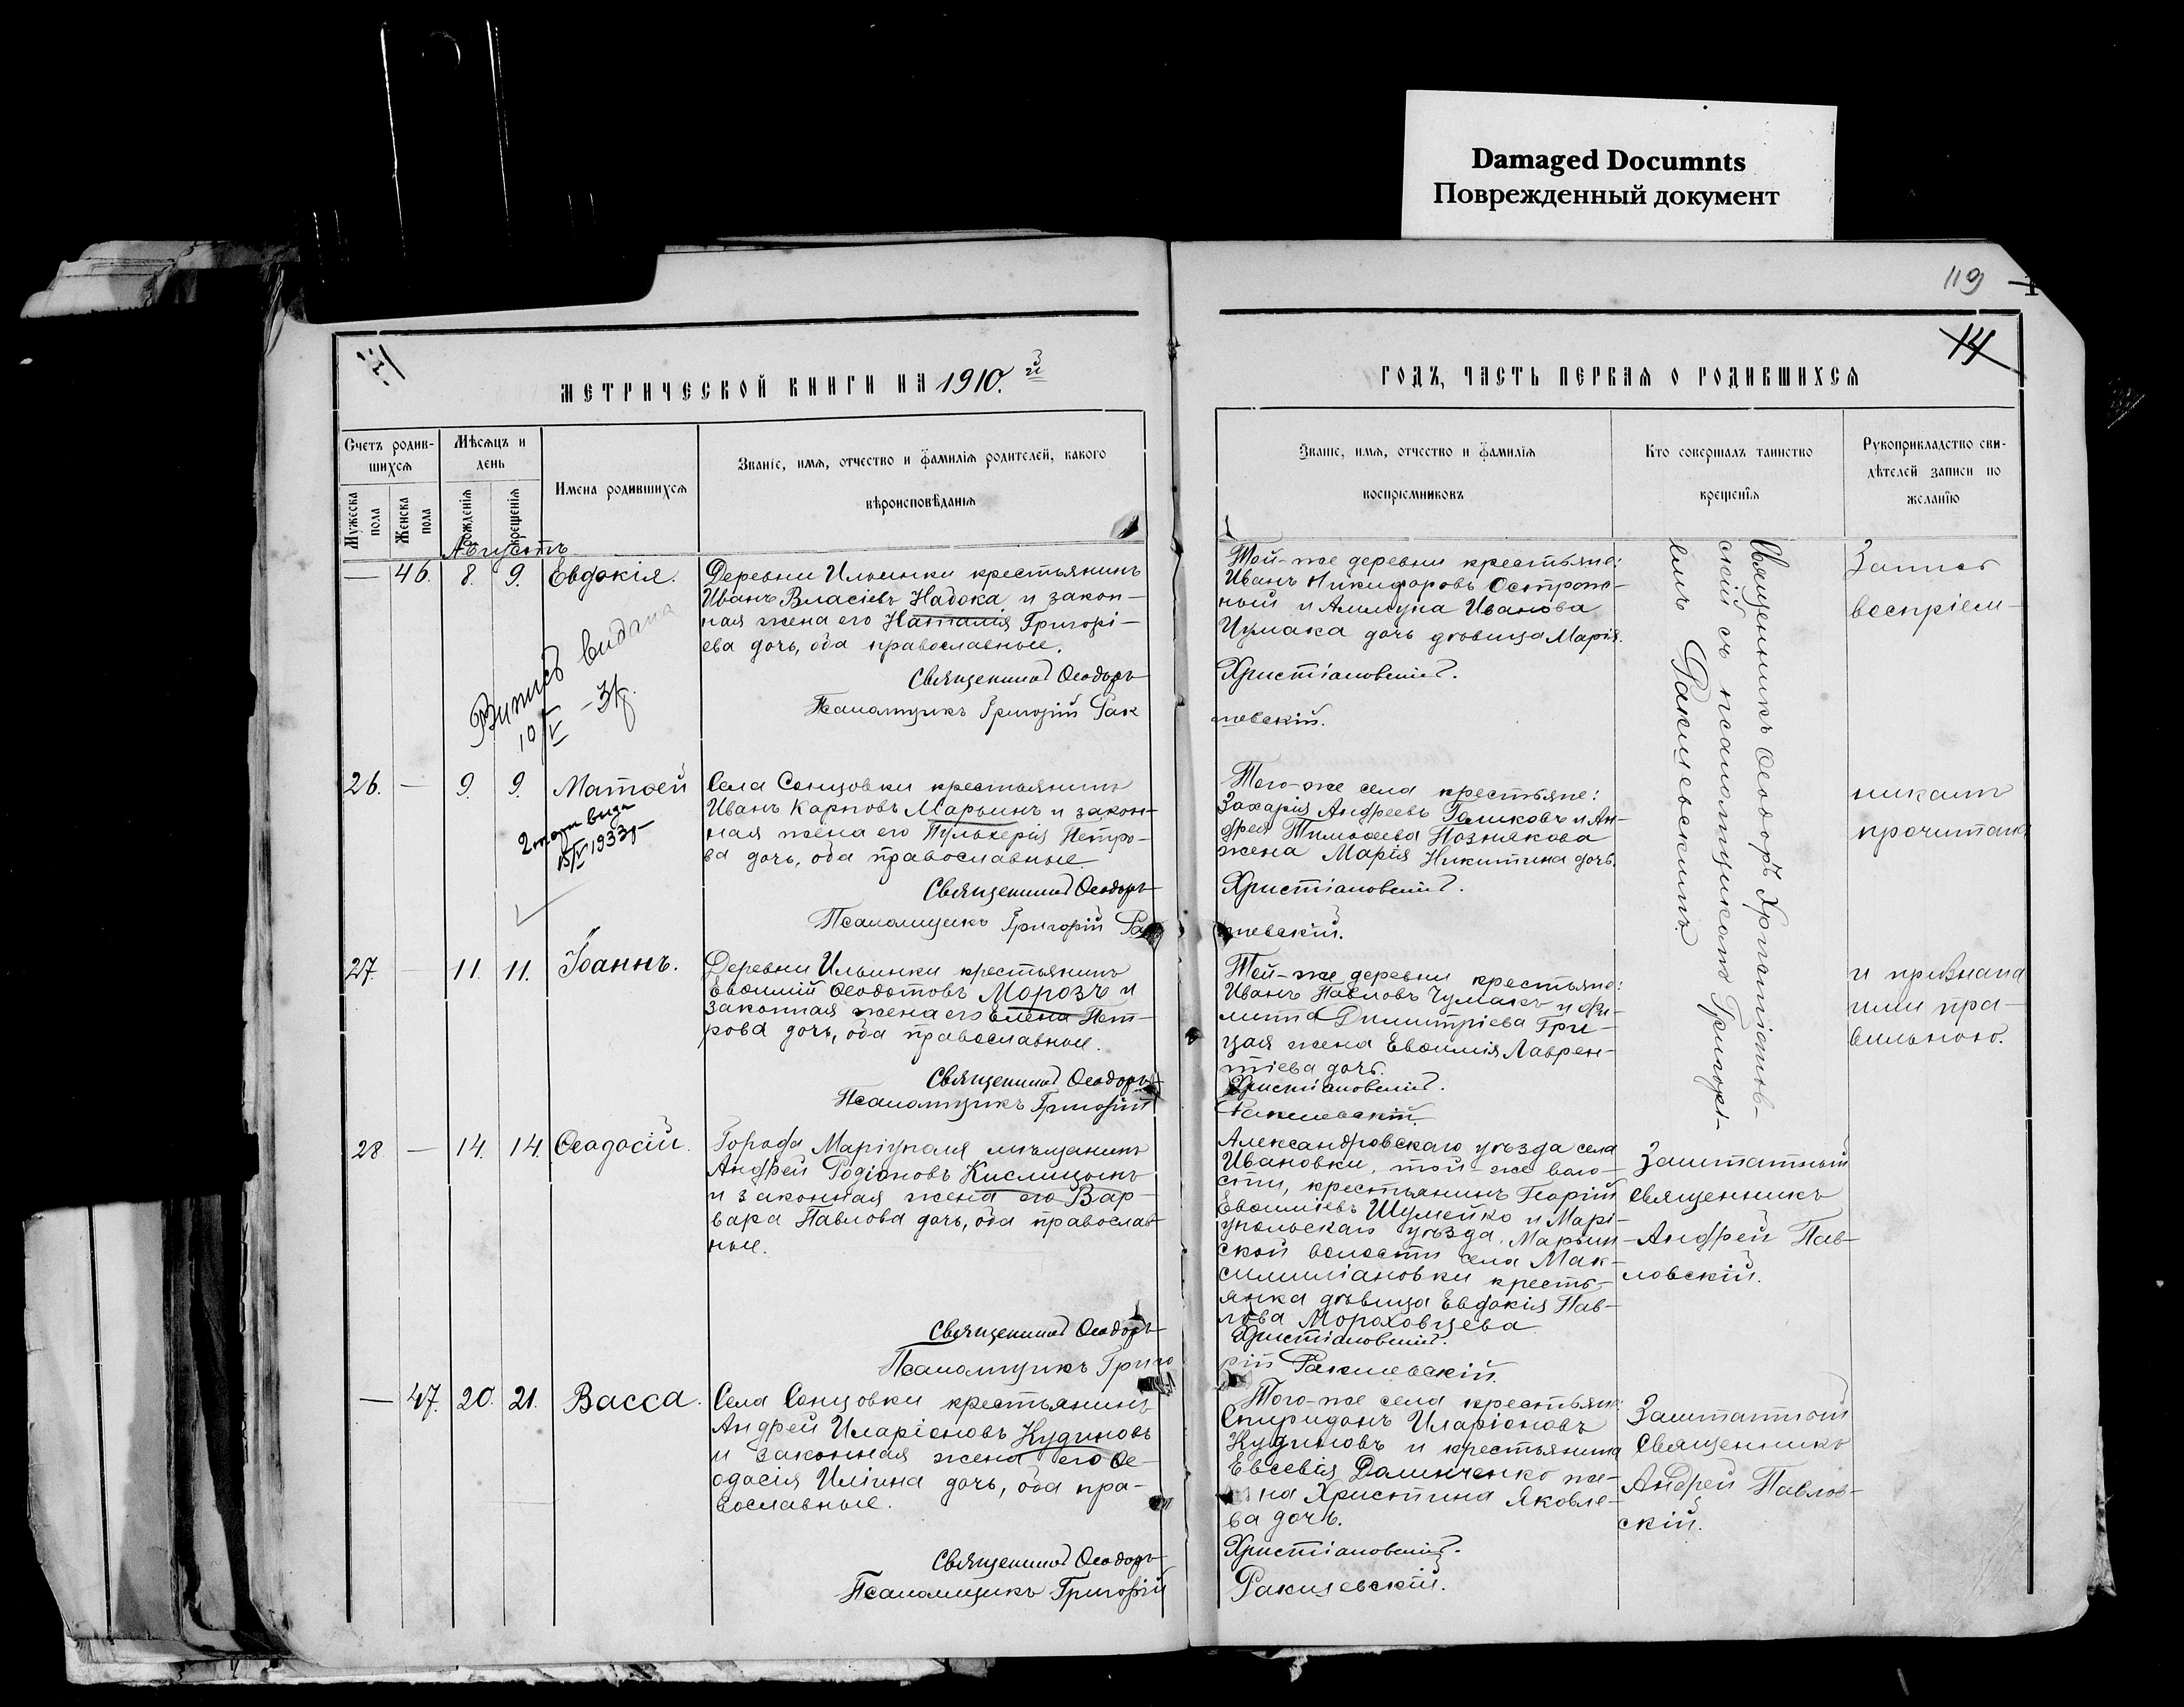 Damaged Documnts
Поврежденный документ
119
14
МЕТРИЧЕСКОЙ КНИГИ НА 1910.й
ГОДЪ, ЧАСТЬ ПЕРВАЯ О РОДИВШИХСЯ
Счетъ родив-
шихся
Мужеска
пола
Женска
пола
Мѣсяцъ и
день
рожденія
крещенія
Имена родившихся
Званіе, имя, отчество и фамилія родителей, какого
вѣроисповѣданія
Званіе, имя, отчество и фамилія
воспріемниковъ
Кто совершалъ таинство
крещенія
Рукоприкладство сви-
дѣтелей записи по
желанію
Августъ
— 46. 8. 9. Евдокія.
Деревни Ильинки крестьянинъ
Иванъ Власіевъ Надока и закон-
ная жена его Наталія Григорі-
ева дочь, оба православные.
Священникъ Ѳеодоръ
Псаломщикъ Григорій Рак
Випись видана
10/V - 3
Той-же деревни крестьяне:
Иванъ Никифоровъ Острож-
ный и Иванова
Чумака дочь дѣвица Марія.
Христіановскій.
шевскій.
Священникъ Ѳеодоръ Христіанов-
скій съ псаломщикомъ Григорі-
емъ Ракшевскимъ.
Запись
воспріем-
26. — 9. 9. Матѳей
15/V 1933
Села Сонцовки крестьянинъ
Иванъ Карповъ Марьинъ и закон-
ная жена его Пульхерія Петро-
ва дочь, оба православные
Священникъ Ѳеодоръ
Псаломщикъ Григорій Рак
Того-же села крестьяне:
Захарія Андреевъ Галиковъ и Ан-
дрея Тимоѳеева Познякова
жена Марія Никитина дочь.
Христіановскій.
шевскій.
никамъ
прочитана
27. — 11. 11. Іоаннъ.
Деревни Ильинки крестьянинъ
Евѳимій Ѳеодотовъ Морозъ и
законная жена его Елена Пет-
рова дочь, оба православные.
Священникъ Ѳеодоръ
Псаломщикъ Григорій
Той-же деревни крестьяне:
Иванъ Павловъ Чумакъ и Фи-
липпа Димитріева Гри-
цая жена Евѳимія Лаврен-
тіева дочь.
Христіановскій.
Ракшевскій.
и признана
ими пра-
вильною.
28 — 14. 14. Ѳеодосій.
Города Маріуполя мѣщанинъ
Андрей Родіоновъ Кислицынъ
и законная жена его Вар-
вара Павлова дочь, оба православ-
ные.
Священникъ Ѳеодоръ
Псаломщикъ Григо
Александровскаго уѣзда села
Ивановки, той-же воло-
сти, крестьянинъ Георгій
Евѳиміевъ Шумейко и Марі-
упольскаго уѣзда, Марьин-
ской волости села Мак-
симиліановки кресть-
янка дѣвица Евдокія Пав-
лова Мороховцева
Христіановскій.
рій Ракшевскій.
Заштатный
священникъ
Андрей Пав-
ловскій.
— 47. 20. 21. Васса.
Села Сонцовки крестьянинъ
Андрей Иларіоновъ Кудиновъ
и законная жена его Ѳе-
одосія Иліина дочь, оба пра-
вославные.
Священникъ Ѳеодоръ
Псаломщикъ Григорій
Того-же села крестьяне:
Спиридонъ Иларіоновъ
Кудиновъ и крестьянина
Евсевія Долинченко же-
на Христина Яковле-
ва дочь.
Христіановскій.
Ракшевскій.
Заштатный
Священникъ
Андрей Павлов-
скій.